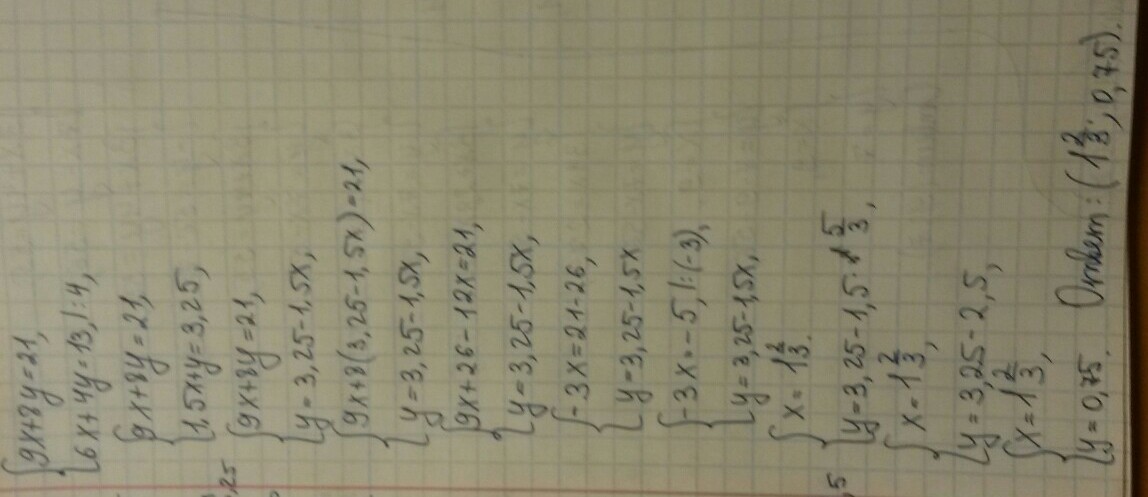 {9x+8y=21,
6x+4y=13,|:4,
{9x+8y=21,
1,5x+y=3,25,
{9x+8y=21,
y=3,25-1,5x,
{9x+8(3,25-1,5x)=21,
y=3,25-1,5x,
{9x+26-12x=21,
y=3,25-1,5x,
{-3x=21-26,
y=3,25-1,5x
{-3x=-5,|:(-3),
y=3,25-1,5x,
{x=1 2/3.
y=3,25-1,5·5/3,
{x=1 2/3,
y=3,25-2,5,
{x=1 2/3,
y=0,75. Ответ: (1 2/3; 0,75).
,25
,5